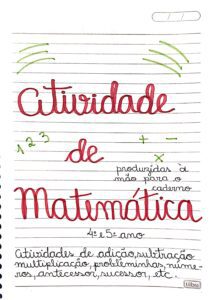 Atividade
1 2 3
+ -
x
de
produzidas à
mão para o
caderno
Matemática
4º e 5º ano
Atividades de adição, subtração
multiplicação, probleminhas, núme-
ros, antecessor, sucessor, etc.